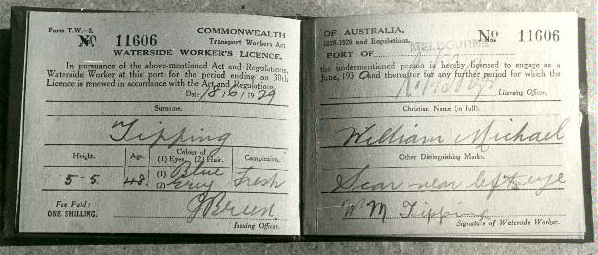 Form T.W.—3.
COMMONWEALTH
Transport Workers Act
No. 11606
WATERSIDE WORKER'S LICENCE.
In pursuance of the above-mentioned Act and Regulations,
Waterside Worker at this port for the period ending on 30th
Licence is renewed in accordance with the Act and Regulations.
Date 18/6/1929
Surname.
Tipping
Height. Age. Colour of (1) Eyes. (2) Hair. Complexion.
5-5 48. (1) Blue (2) Grey Fresh
Fee Paid:
ONE SHILLING.
Issuing Officer.
OF AUSTRALIA.
1928-1929 and Regulations.
No. 11606
MELBOURNE
PORT OF
the undermentioned person is hereby licensed to engage as a
June, 1930 and thereafter for any further period for which the
Licensing Officer.
Christian Name (in full).
William Michael
Other Distinguishing Marks.
Scar near left eye
W M Tipping
Signature of Waterside Worker.